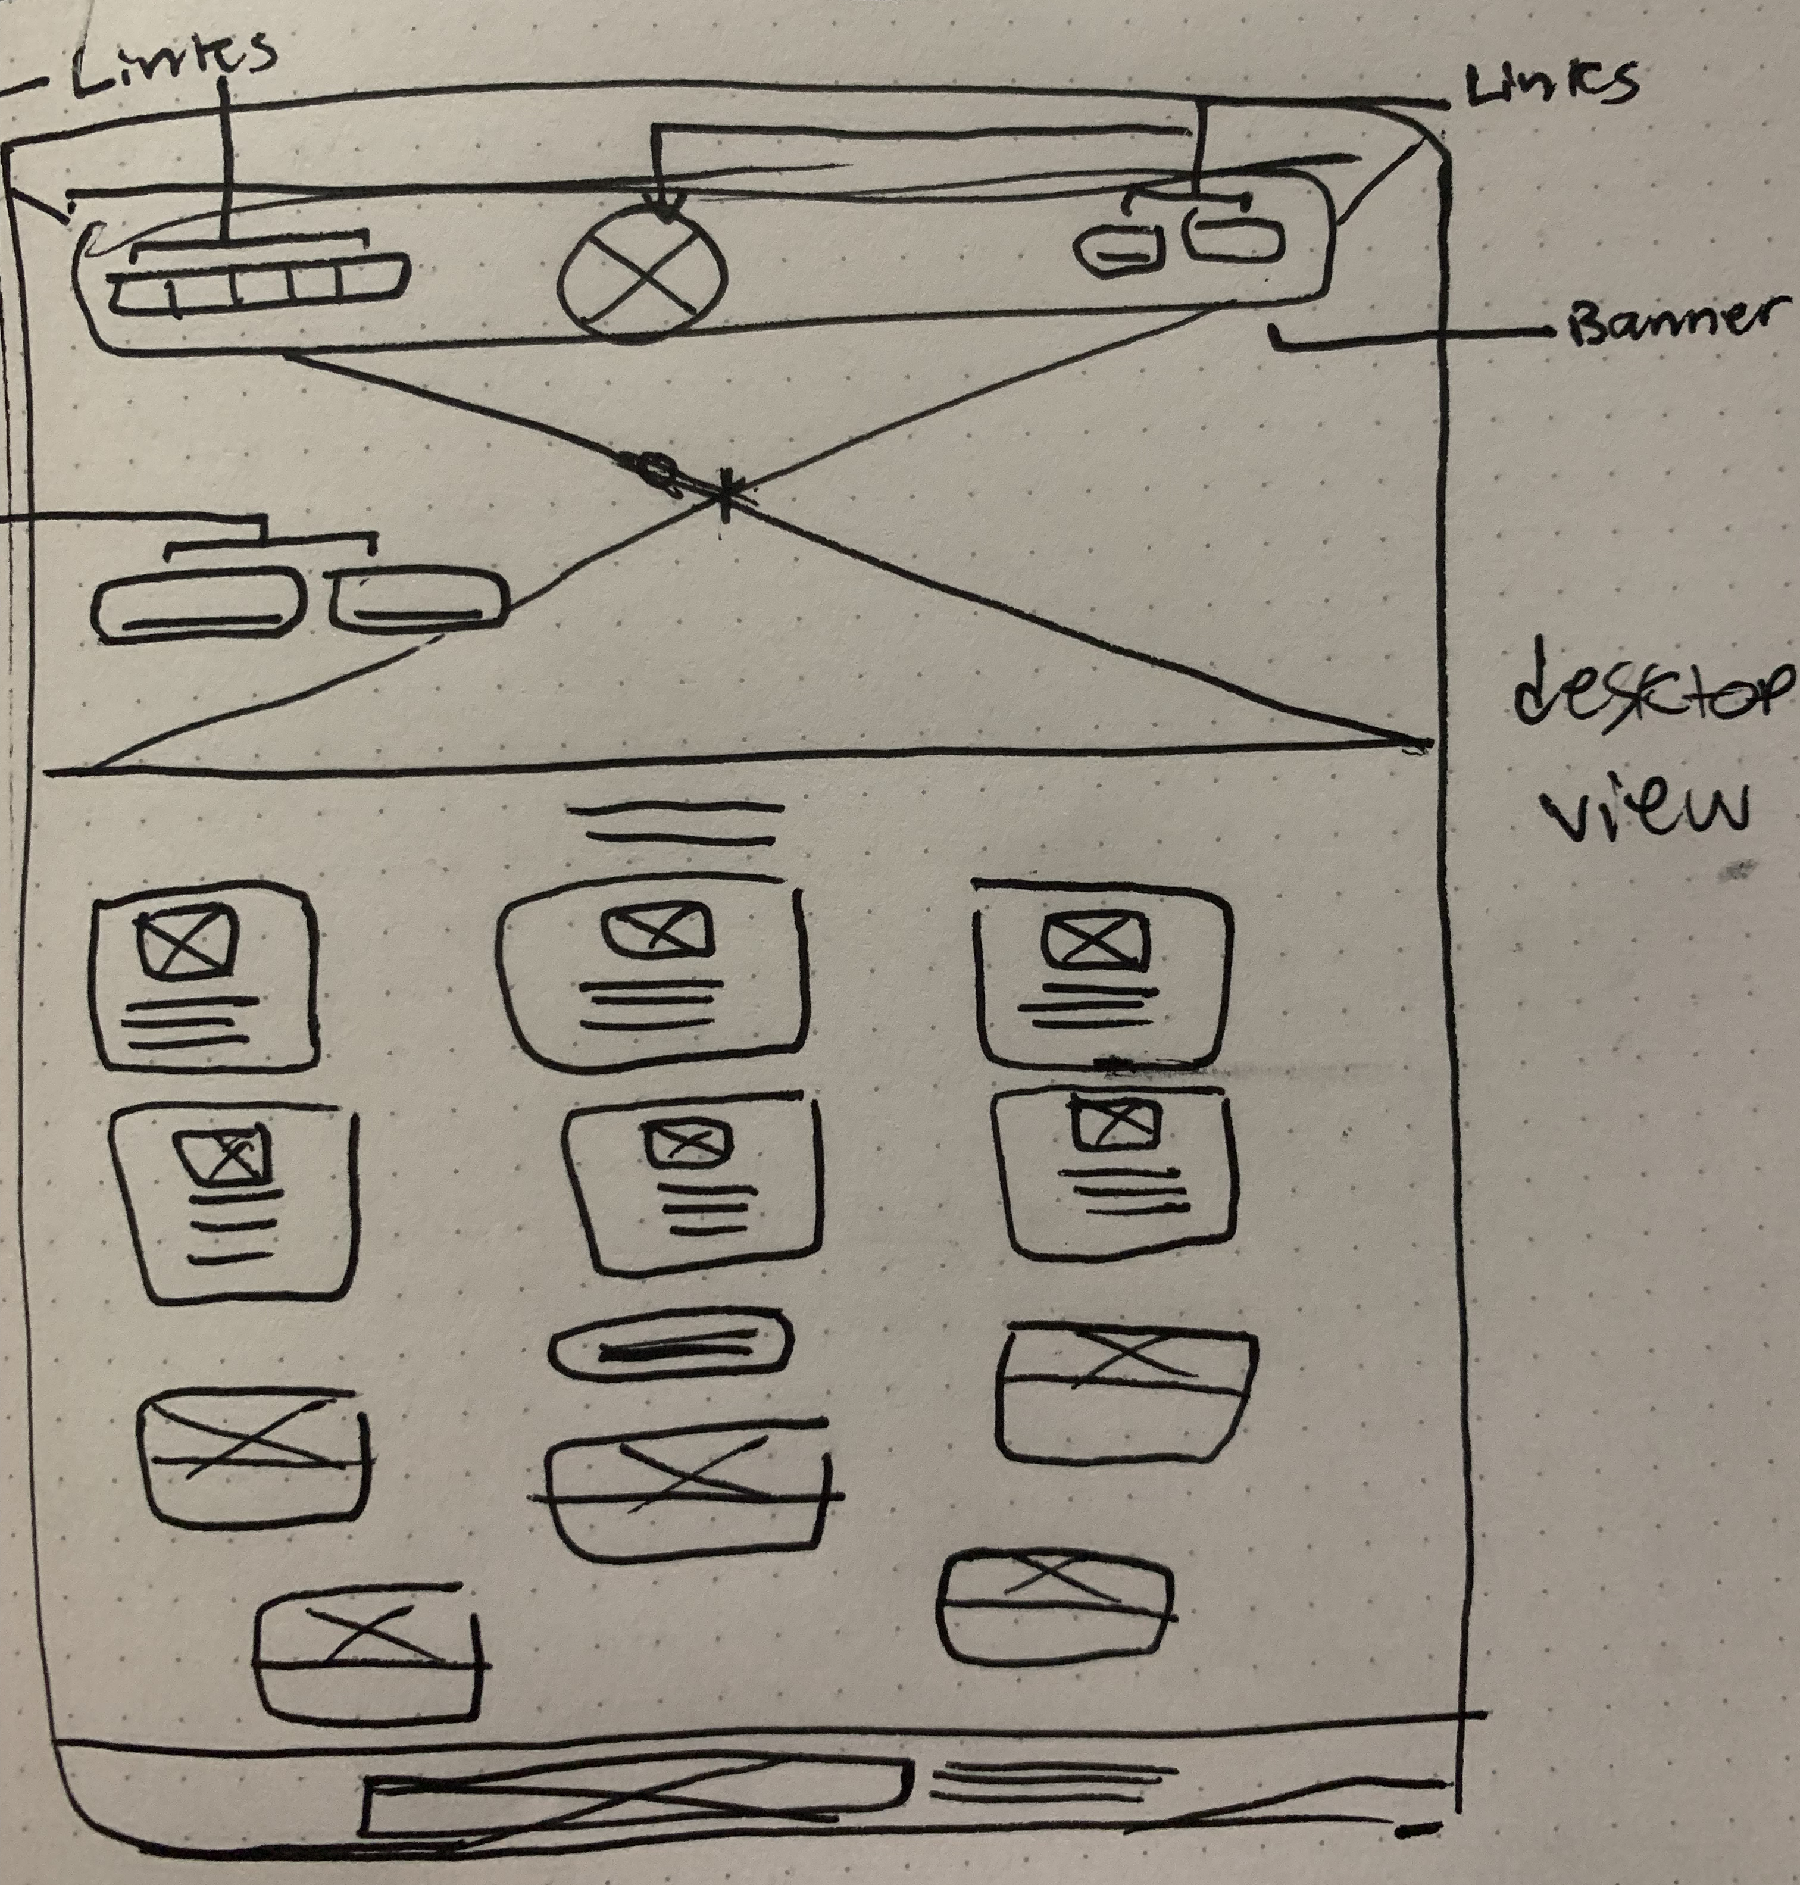 Links
Links
Banner
desktop
view